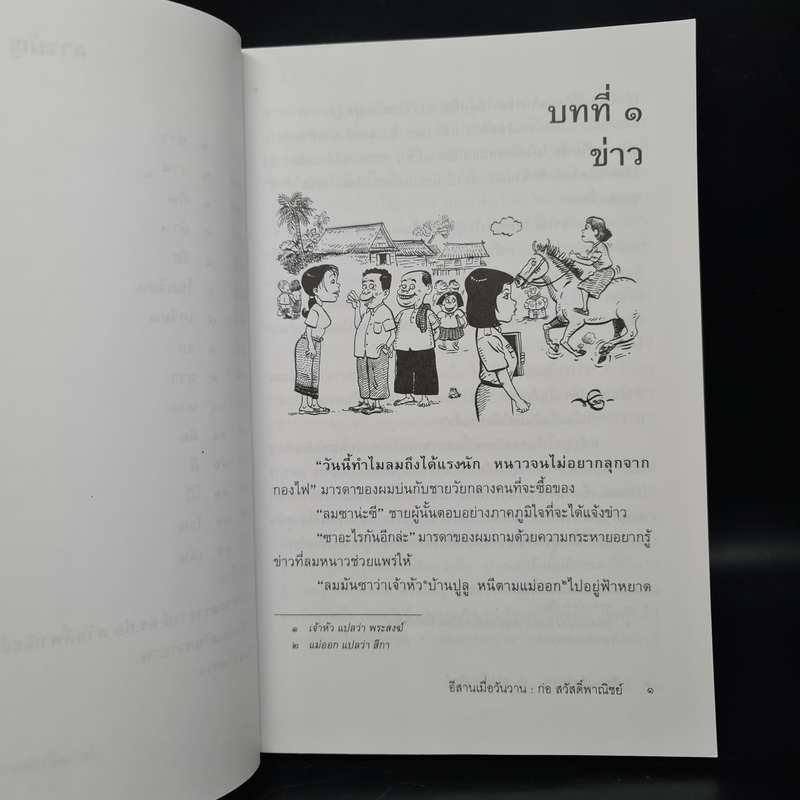 บทที่ ๑
ข่าว
“วันนี้ทำไมลมถึงได้แรงนัก หนาวจนไม่อยากลุกจาก
กองไฟ” มารดาของผมบ่นกับชายวัยกลางคนที่จะซื้อของ
“ลมซาน่ะซี” ชายผู้นั้นตอบอย่างภาคภูมิใจที่จะได้แจ้งข่าว
“ซาอะไรกันอีกล่ะ” มารดาของผมถามด้วยความกระหายอยากรู้
ข่าวที่ลมหนาวช่วยแพร่ให้
“ลมมันซาว่าเจ้าหัว๑บ้านปูลู หนีตามแม่ออก๒ไปอยู่ฟ้าหยาด
๑ เจ้าหัว แปลว่า พระสงฆ์
๒ แม่ออก แปลว่า สีกา
อีสานเมื่อวันวาน : ก่อ สวัสดิ์พาณิชย์ ๑